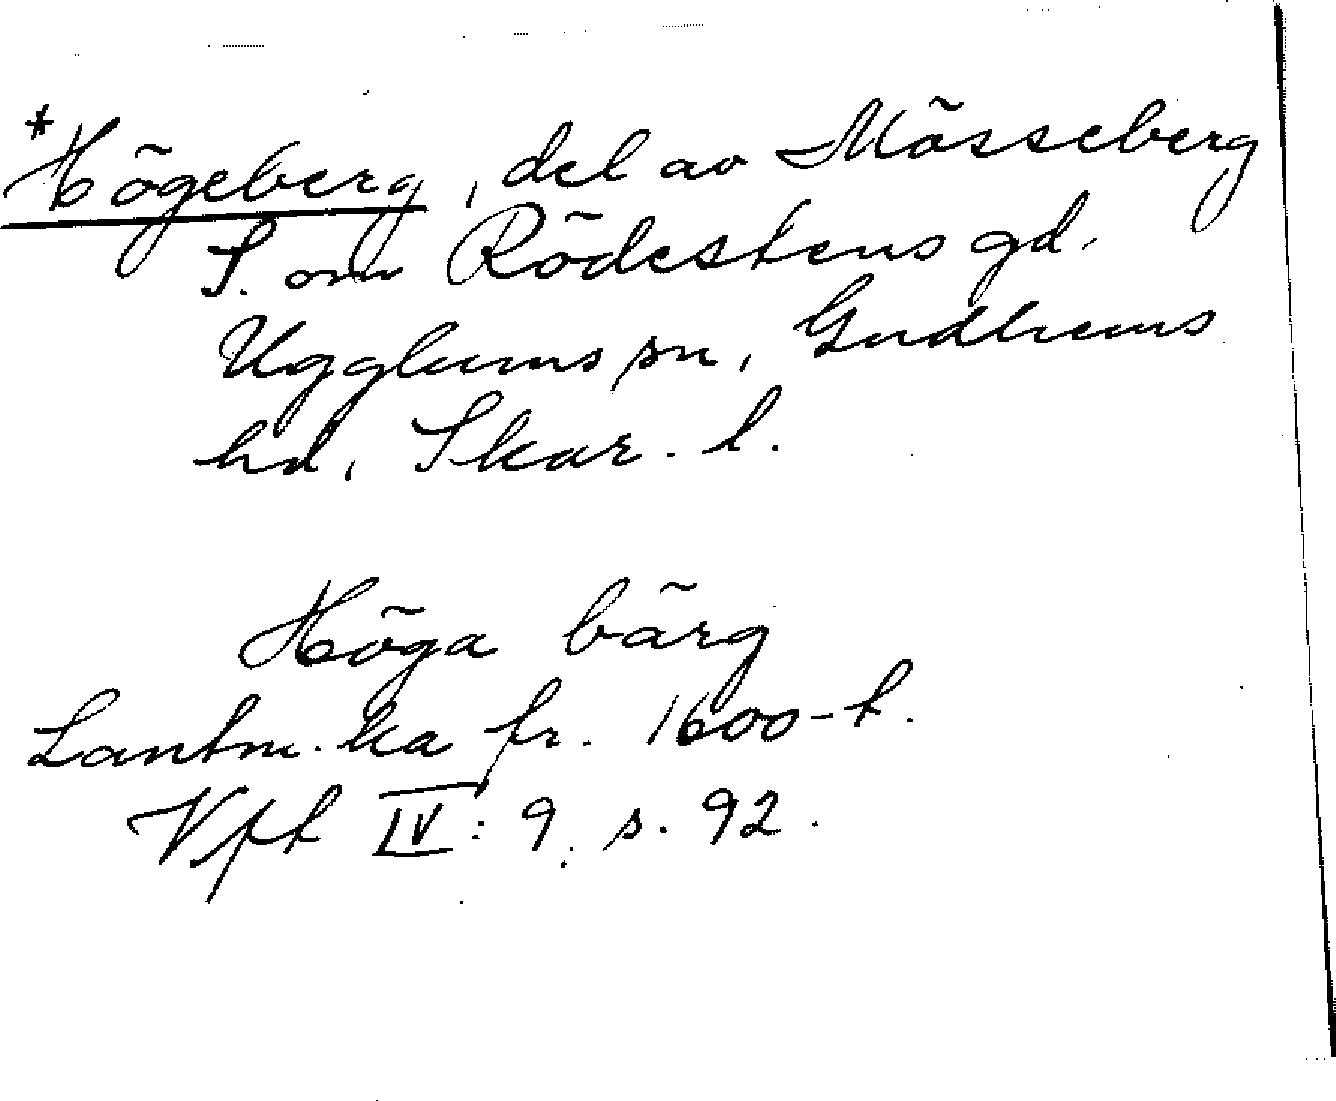 *Högeberg, del av Mösseberg
S. om Rödestens gd.
Ugglums sn, Gudhems
hd, Skar. l.
Höga bärg
Lantm. ka fr. 1600-t.
Vft IV: 9, s. 92.